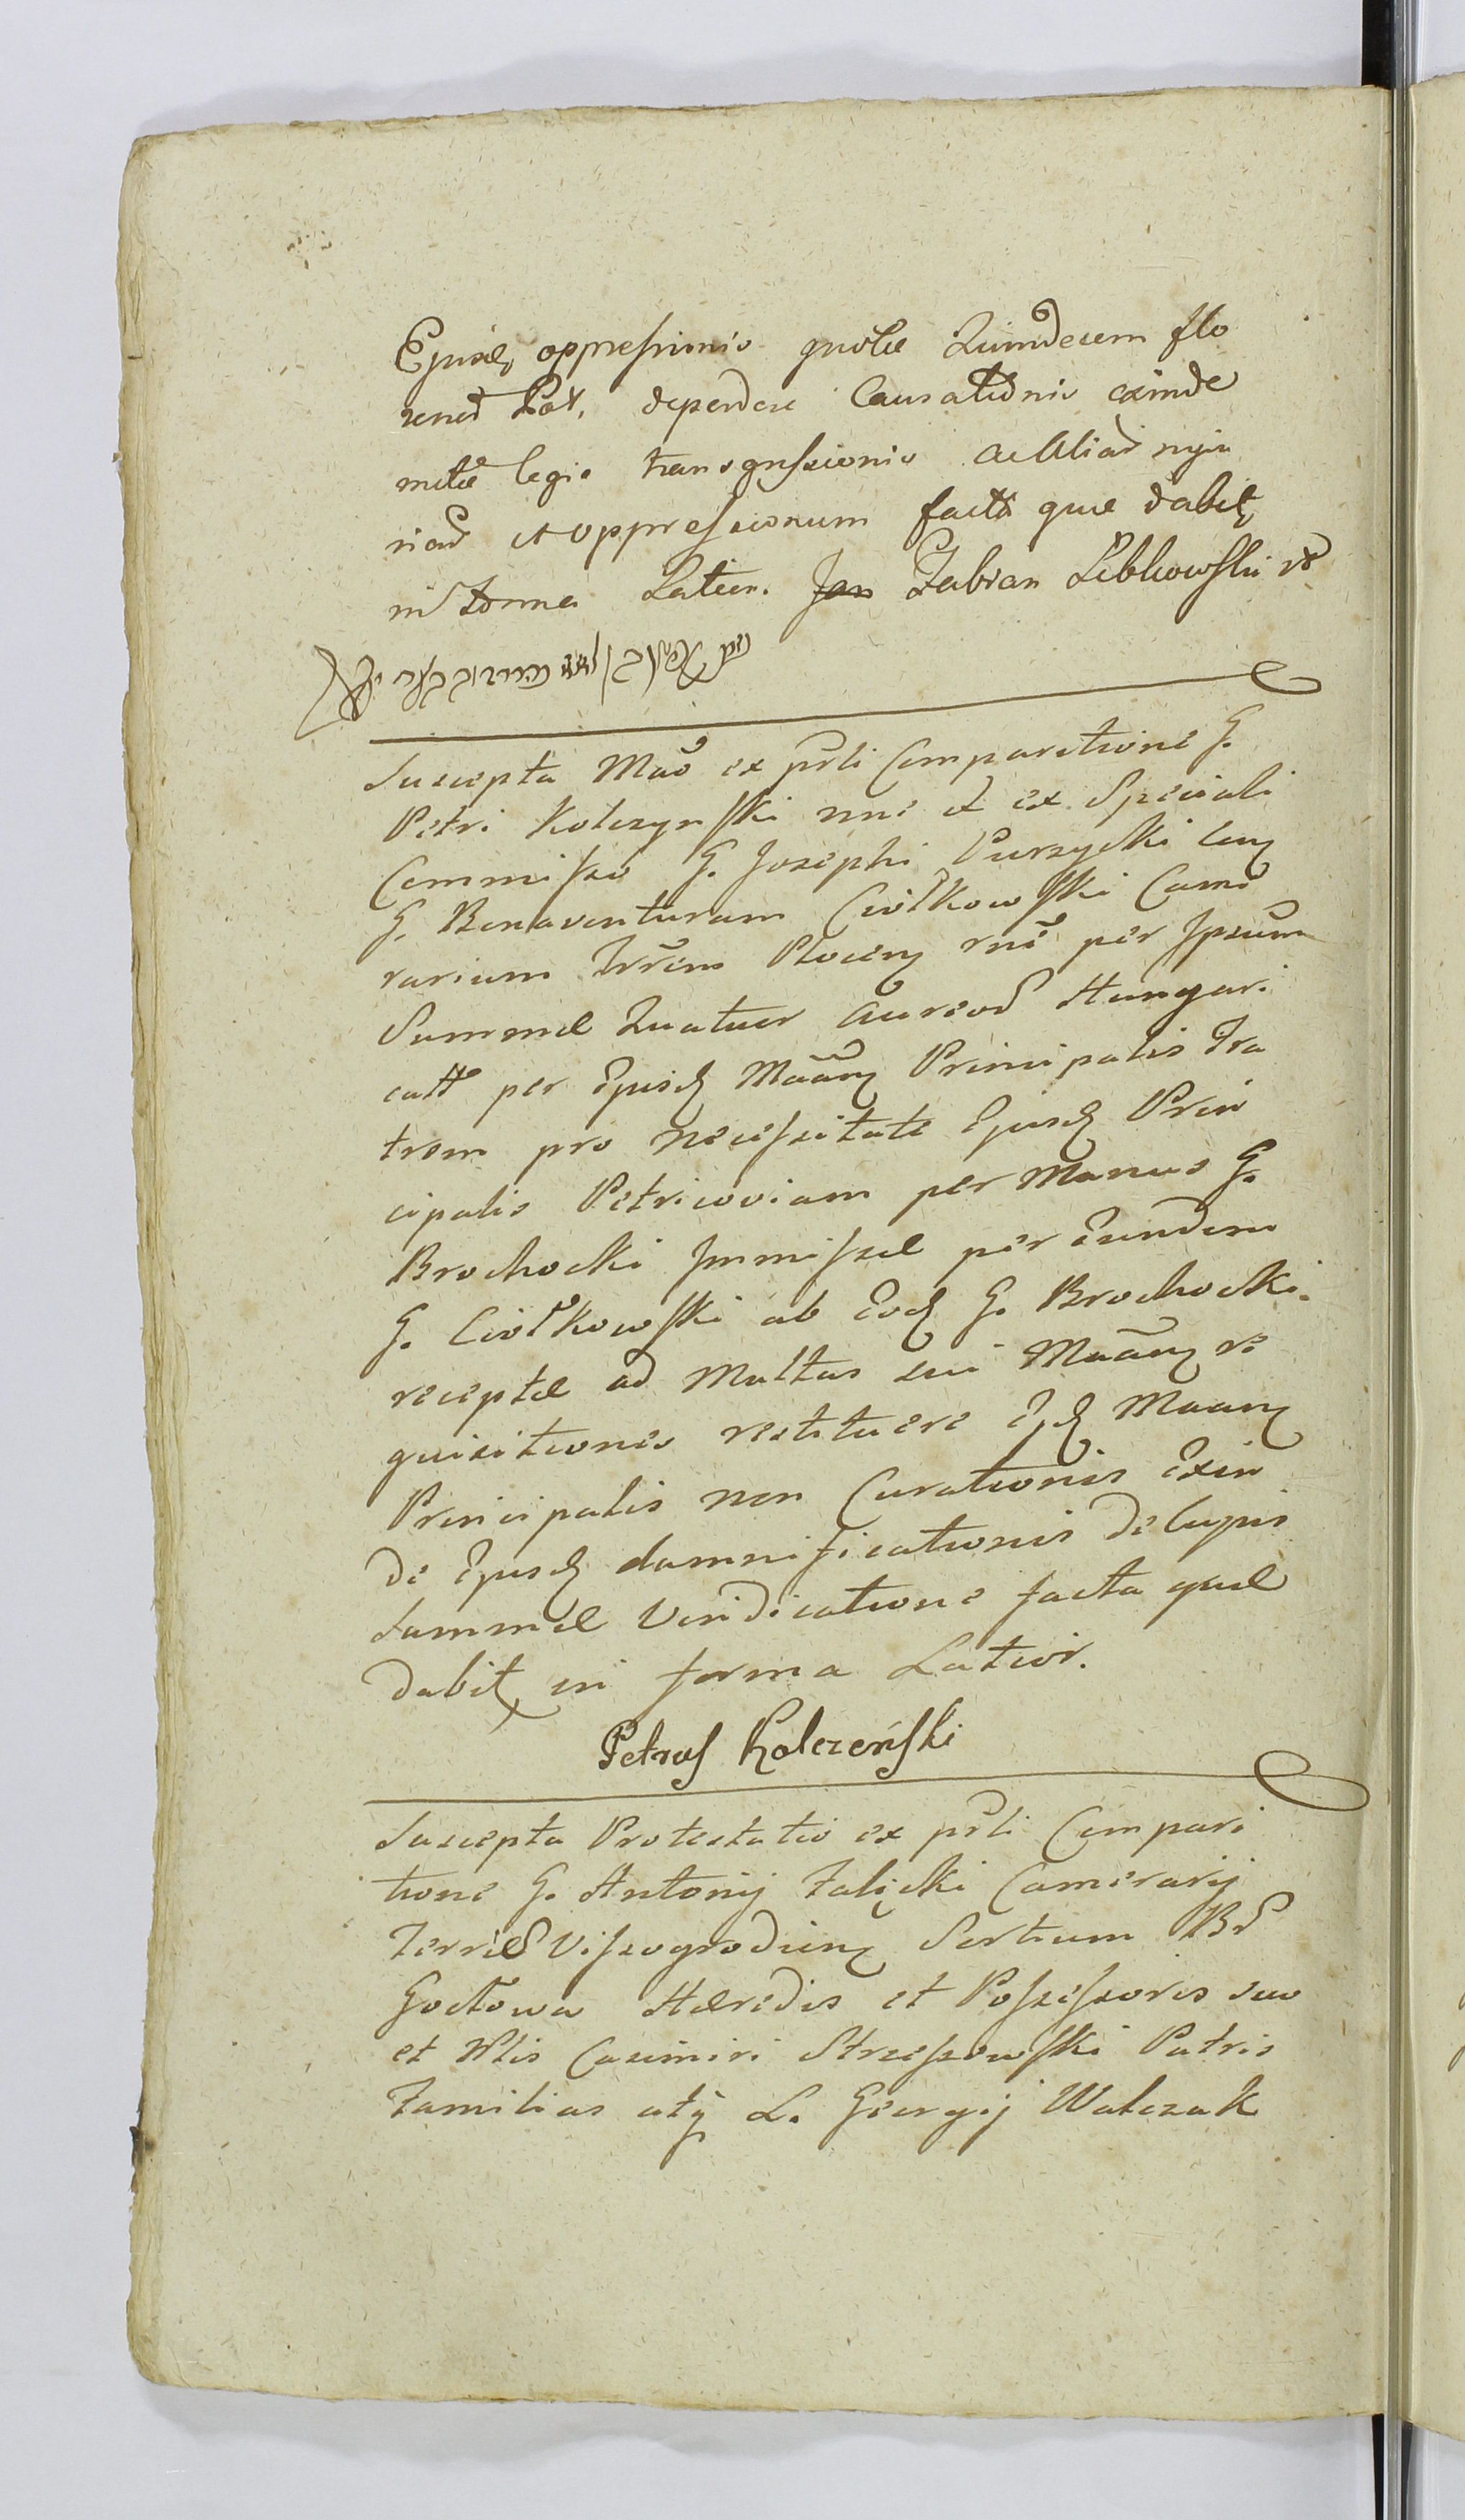 Ejusd oppressionis quotae Quindecem flo
renos Pol. dependere Causationis exinde
multae legis transgressionis Ac Aliar inju
riar et oppressionum facta quae dabit
in forma Latior. Jan Fabian Lebkowski
Suscepta Mão ex prli Comparitione G.
Petri Kolczynski nne et ex Speciali
Commisso G. Josephi Purzycki Cong
G. Bonaventuram Ciołkowski Came
rarium Trrem Plocen rne per Ipsum
Summae Quatuor Aureor Hungari
call per Ejusd Mãan Principalis Fra
trem pro necessitate Ejusd Prin
cipalis Petricoviam per Manus G.
Brochocki Immissae per Eundem
G. Ciołkowski ab Eod G. Brochocki
receptae ad Multas sui Mãan re
quisitiones restituere Ejd Maan
Principalis non Curationis Exin
de Ejusd damnificationis de Cujus
Summae Vindicatione facta quae
dabit in forma Latior.
Petrus Kolczeński
Suscepta Protestatio ex prli Compari
tione G. Antonij Zalęcki Camerarij
Terrae Vissogrodien Sortium Br
Goctowa Haeredis et Possessoris suo
et Nlis Casimiri Strzeszewski Patris
Familias atq L. Georgij Walczak